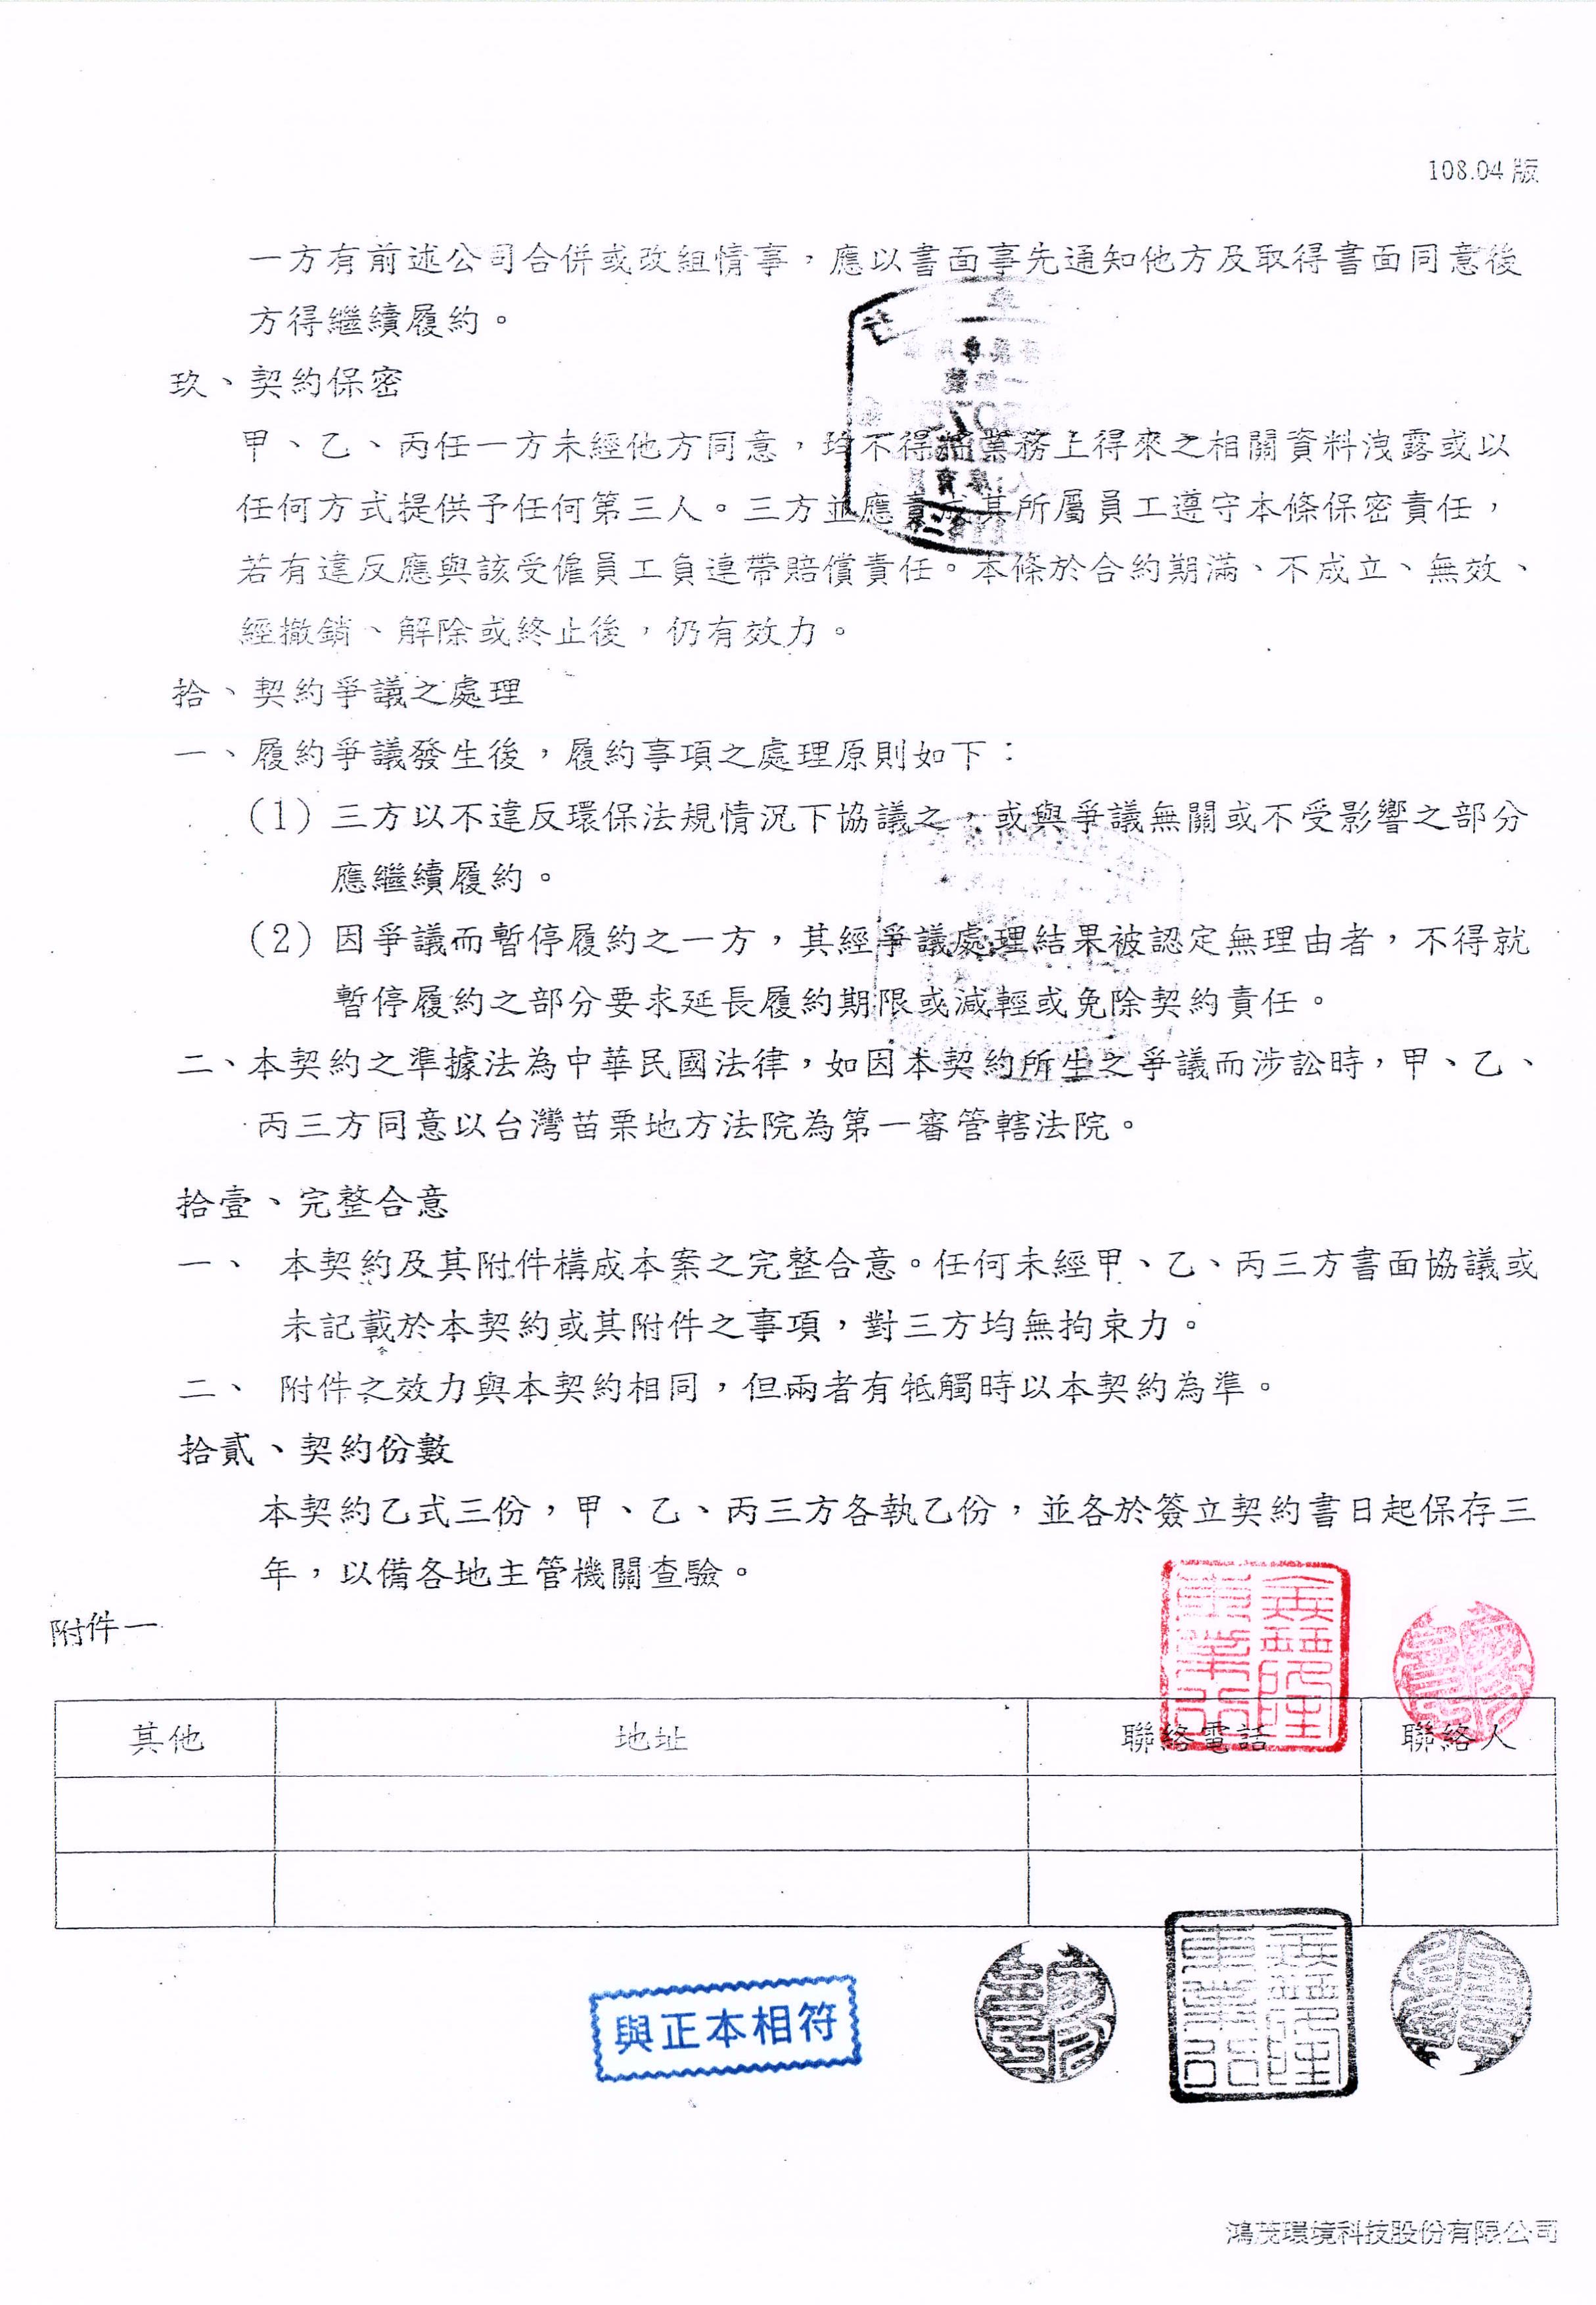 108.04 版
一方有前述公司合併或改組情事，應以書面事先通知他方及取得書面同意後
方得繼續履約。
玖、契約保密
甲、乙、丙任一方未經他方同意，均不得將業務上得來之相關資料洩露或以
任何方式提供予任何第三人。三方並應責成其所屬員工遵守本條保密責任，
若有違反應與該受僱員工負連帶賠償責任。本條於合約期滿、不成立、無效、
經撤銷、解除或終止後，仍有效力。
拾、契約爭議之處理
一、履約爭議發生後，履約事項之處理原則如下：
(1) 三方以不違反環保法規情況下協議之，或與爭議無關或不受影響之部分
應繼續履約。
(2) 因爭議而暫停履約之一方，其經爭議處理結果被認定無理由者，不得就
暫停履約之部分要求延長履約期限或減輕或免除契約責任。
二、本契約之準據法為中華民國法律，如因本契約所生之爭議而涉訟時，甲、乙、
丙三方同意以台灣苗栗地方法院為第一審管轄法院。
拾壹、完整合意
一、 本契約及其附件構成本案之完整合意。任何未經甲、乙、丙三方書面協議或
未記載於本契約或其附件之事項，對三方均無拘束力。
二、 附件之效力與本契約相同，但兩者有牴觸時以本契約為準。
拾貳、契約份數
本契約乙式三份，甲、乙、丙三方各執乙份，並各於簽立契約書日起保存三
年，以備各地主管機關查驗。
附件一
其他 地址 聯絡電話 聯絡人
與正本相符
鴻茂環境科技股份有限公司